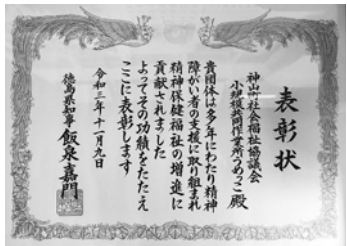 表彰状
神山町社会福祉協議会
小規模共同作業所つめっこ殿
貴団体は多年にわたり精神
障がい者の支援に取り組まれ
精神保健福祉の増進に
貢献されました
よってその功績をたたえ
ここに表彰します
令和三年十一月九日
徳島県知事 飯泉嘉門